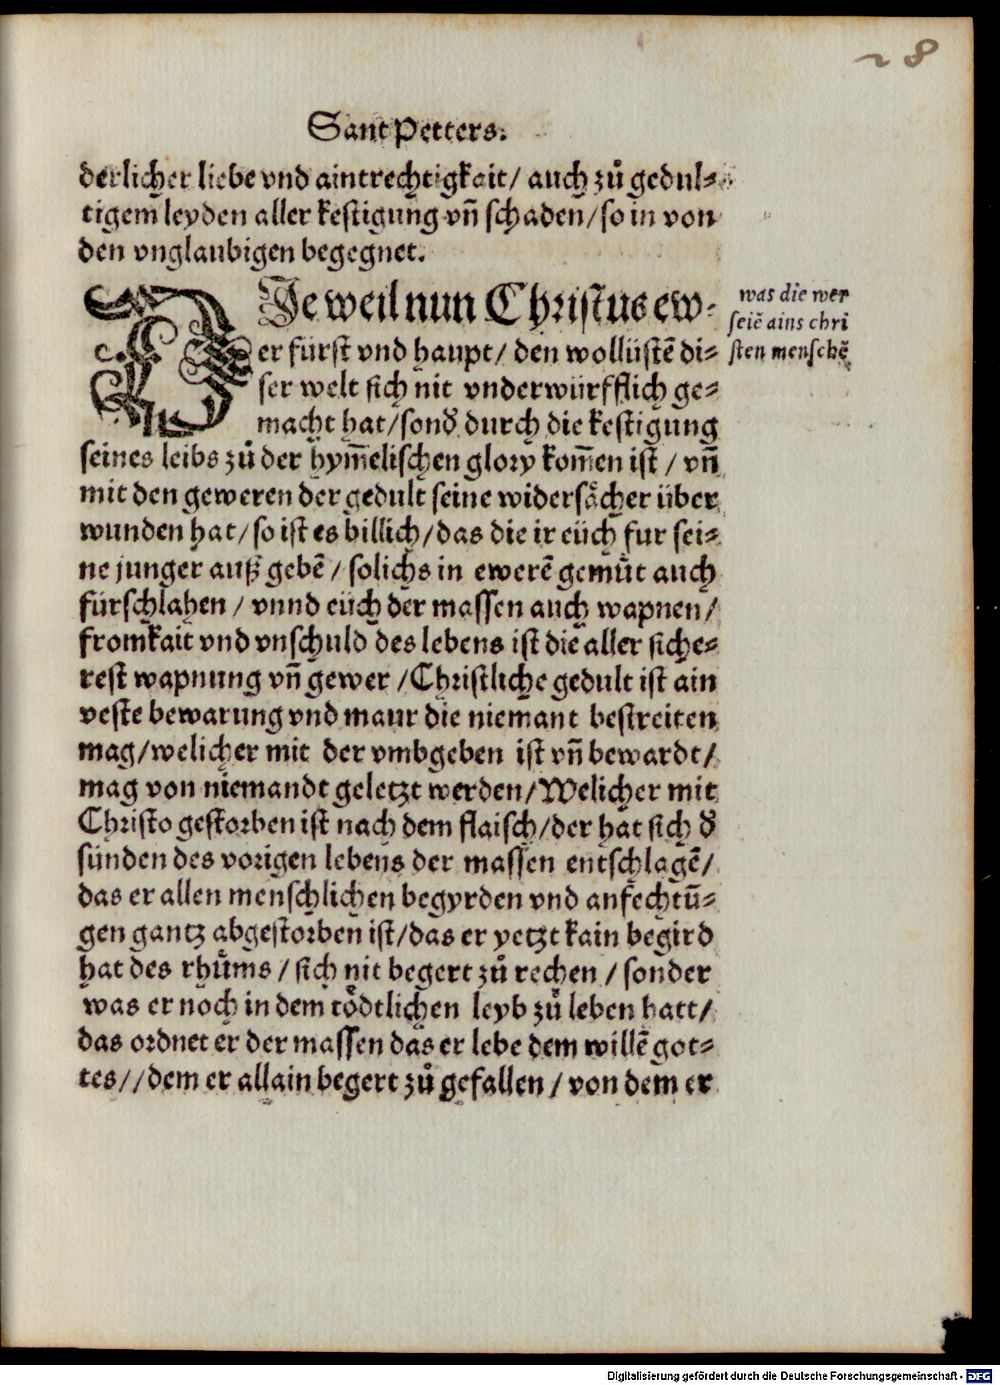 28
Sant Petters.
derlicher liebe vnd aintrechtigkait/ auch zů gedul⸗
tigem leyden aller kestigung vñ schaden/so in von
den vnglaubigen begegnet.
DJe weil nun Christus ew⸗
er fürst vnd haupt/ den wollüstē di⸗
ser welt sich nit vnderwürfflich ge⸗
macht hat/sonð durch die kestigung
seines leibs zů der hym̃elischen glory kom̃en ist / vñ
mit den geweren der gedult seine widersaͤcher über
wunden hat/so ist es billich/das die ir eüch fur sei⸗
ne junger auß gebē / solichs in ewerē gemuͤt auch
fürschlahen / vnnd eüch der massen auch wapnen/
fromkait vnd vnschuld des lebens ist die aller siche⸗
rest wapnung vñ gewer /Christliche gedult ist ain
veste bewarung vnd maur die niemant bestreiten
mag/welicher mit der vmbgeben ist vñ bewardt/
mag von niemandt geletzt werden/Welicher mit
Christo gestorben ist nach dem flaisch/der hat sich ð
sünden des vorigen lebens der massen entschlagē/
das er allen menschlichen begyrden vnd anfechtū⸗
gen gantz abgestorben ist/das er yetzt kain begird
hat des rhůms / sich nit begert zů rechen / sonder
was er noch in dem toͤdtlichen leyb zů leben hatt/
das ordnet er der massen das er lebe dem willē got⸗
tes//dem er allain begert zů gefallen / von dem er
was die wer
seiē ains chri
sten menschē
Digitalisierung gefördert durch die Deutsche Forschungsgemeinschaft - DFG